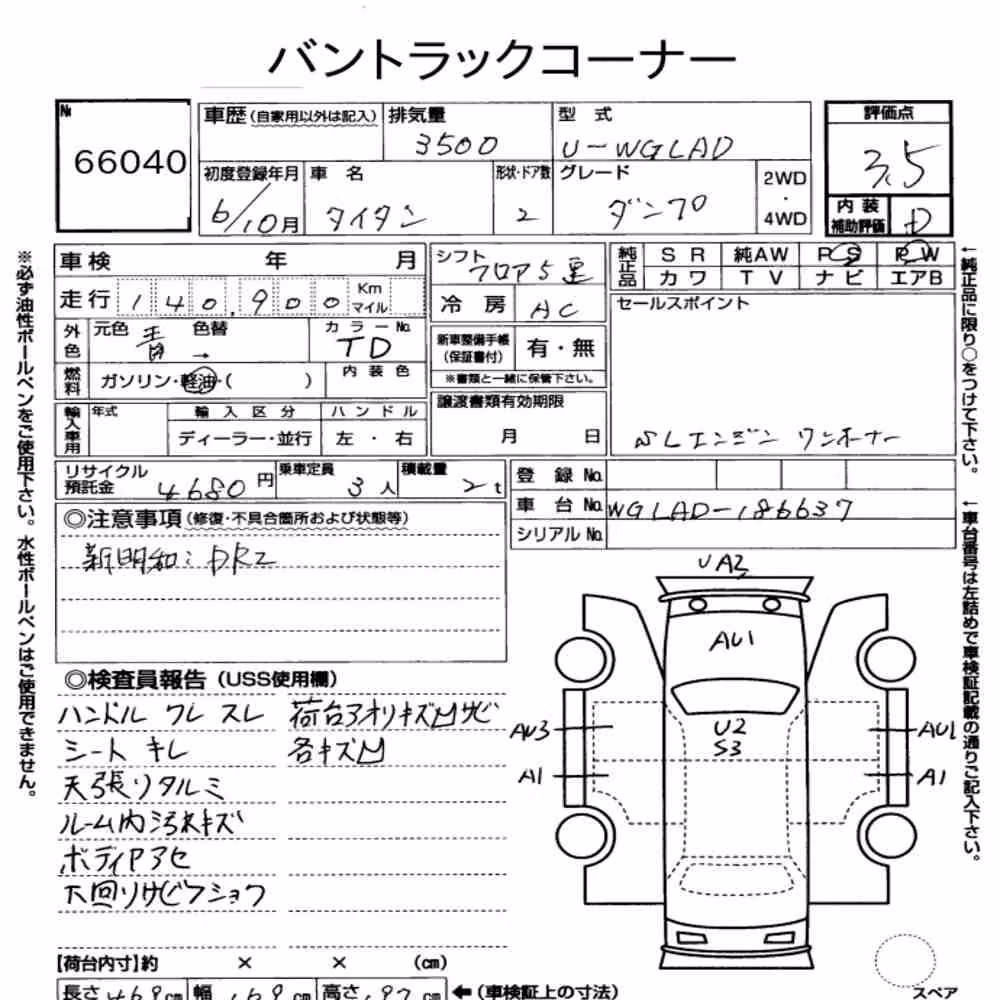 バントラックコーナー
№ 66040
車歴(自家用以外は記入) 排気量 3500 型 式 U-WGLAD
評価点 3.5
初度登録年月 6/10月 車 名 タイタン 形状・ドア数 2 グレード ダンプ 2WD・4WD
内装補助評価 D
車検 年 月
走行 140,900 Km マイル
外色 元色 青 色替 → カラーNo. TD
燃料 ガソリン・軽油・( ) 内装色
輸入車用 年式 輸入区分 ハンドル
ディーラー・並行 左・右
シフト フロア5速
冷房 AC
新車整備手帳(保証書付) 有・無
※書類と一緒に保管下さい。
譲渡書類有効期限
月 日
純正品 SR 純AW PS PW
カワ TV ナビ エアB
セールスポイント
SLエンジン ワンオーナー
リサイクル預託金 4680円 乗車定員 3人 積載量 2t
登録No.
車台No. WGLAD-186637
シリアルNo.
◎注意事項(修復・不具合箇所および状態等)
新明和:DR2
◎検査員報告(USS使用欄)
ハンドル ワレ スレ 荷台アオリキズ凹サビ
シート キレ 各キズ凹
天張リタルミ
ルーム内汚れキズ
ボディアセ
下回りサビフショク
【荷台内寸】約 × × (cm)
長さ469cm 幅169cm 高さ197cm ←(車検証上の寸法)
UA2
AU1
U2
S3
AU3
A1
AU1
A1
スペア
※必ず油性ボールペンをご使用下さい。水性ボールペンはご使用できません。
←純正品に限り○をつけて下さい。
←車台番号は左詰めで車検証記載の通りご記入下さい。